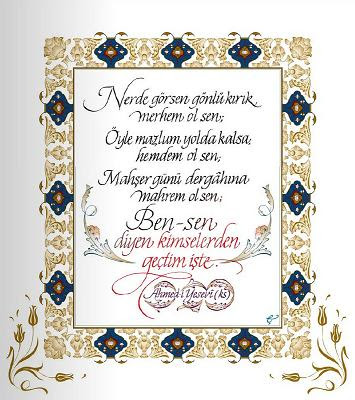 Nerde görsen gönlü kırık,
merhem ol sen;
Öyle mazlum yolda kalsa;
hemdem ol sen;
Mahşer günü dergâhına
mahrem ol sen;
Ben-sen
diyen kimselerden
geçtim işte.
Ahmed-i Yesevî (ks)